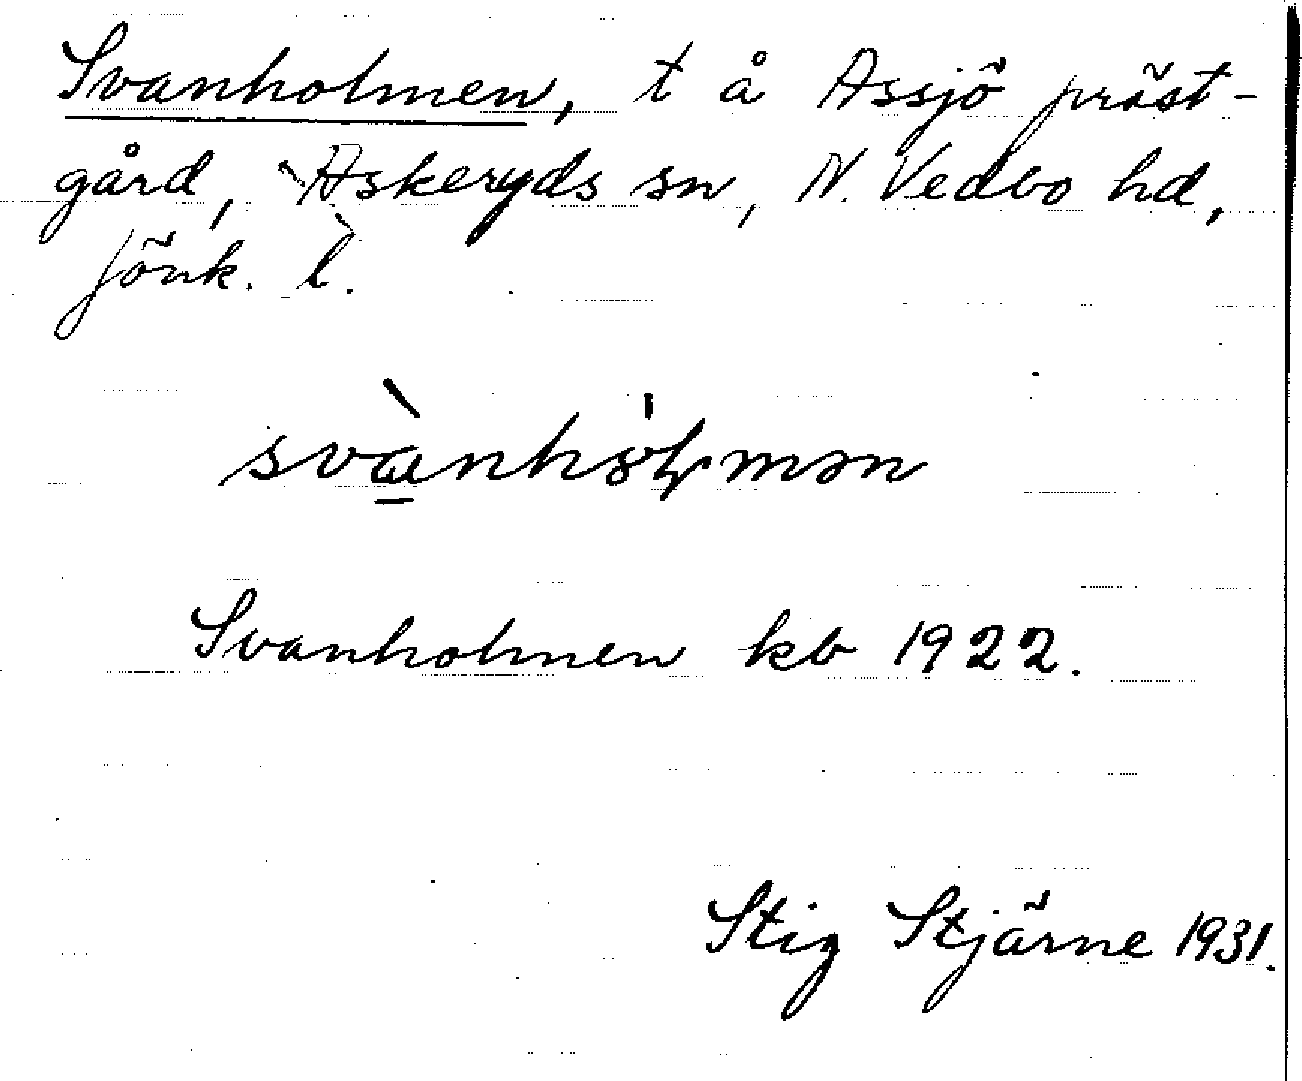 Svanholmen, t å Assjö präst-
gård, Askeryds sn, N. Vedbo hd,
Jönk. l.
svànhòlmən
Svanholmen kb 1922.
Stig Stjärne 1931.